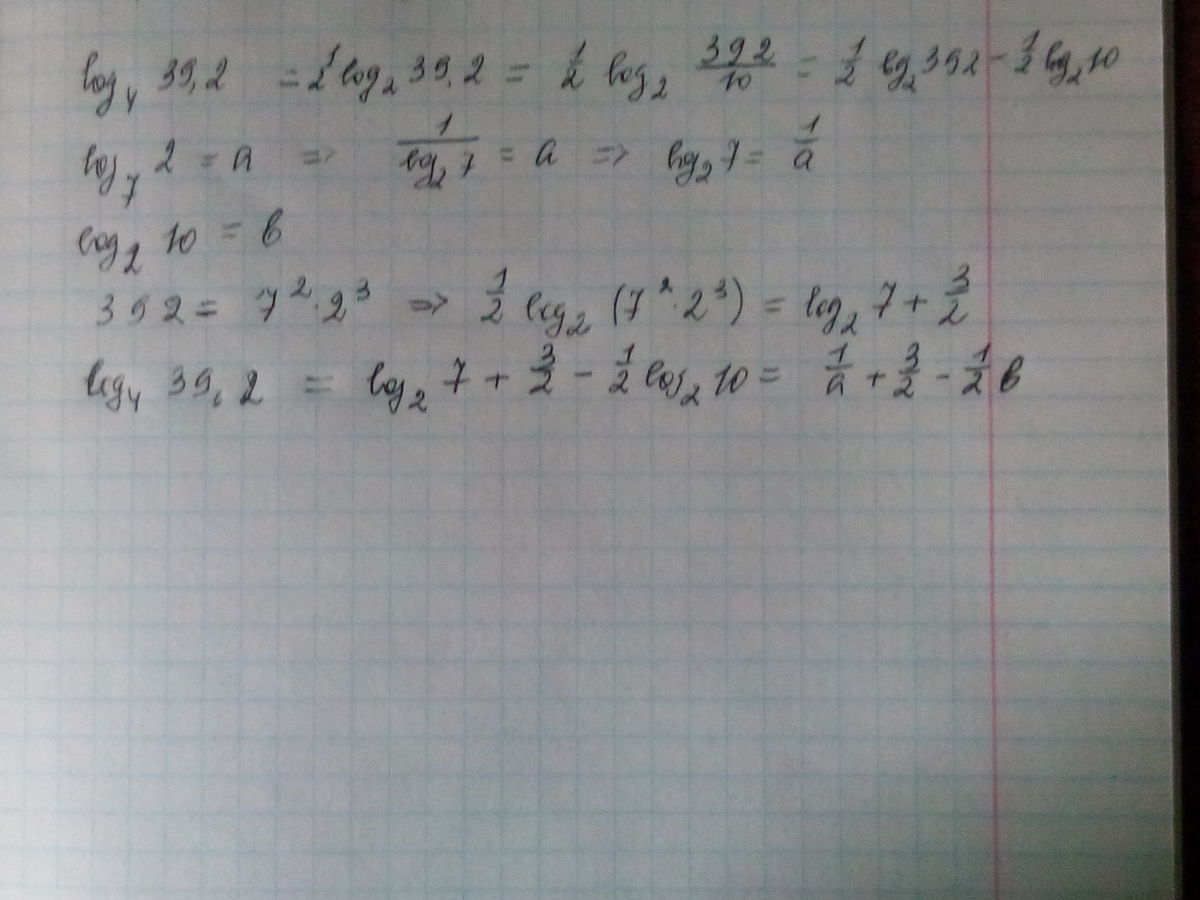 log₄ 39,2 = ½ log₂ 39,2 = ½ log₂ 392/10 = ½ log₂ 392 - ½ log₂ 10
log₇ 2 = a => 1/log₂ 7 = a => log₂ 7 = 1/a
log₂ 10 = в
392 = 7² · 2³ => ½ log₂ (7² · 2³) = log₂ 7 + 3/2
log₄ 39,2 = log₂ 7 + 3/2 - ½ log₂ 10 = 1/a + 3/2 - ½ в